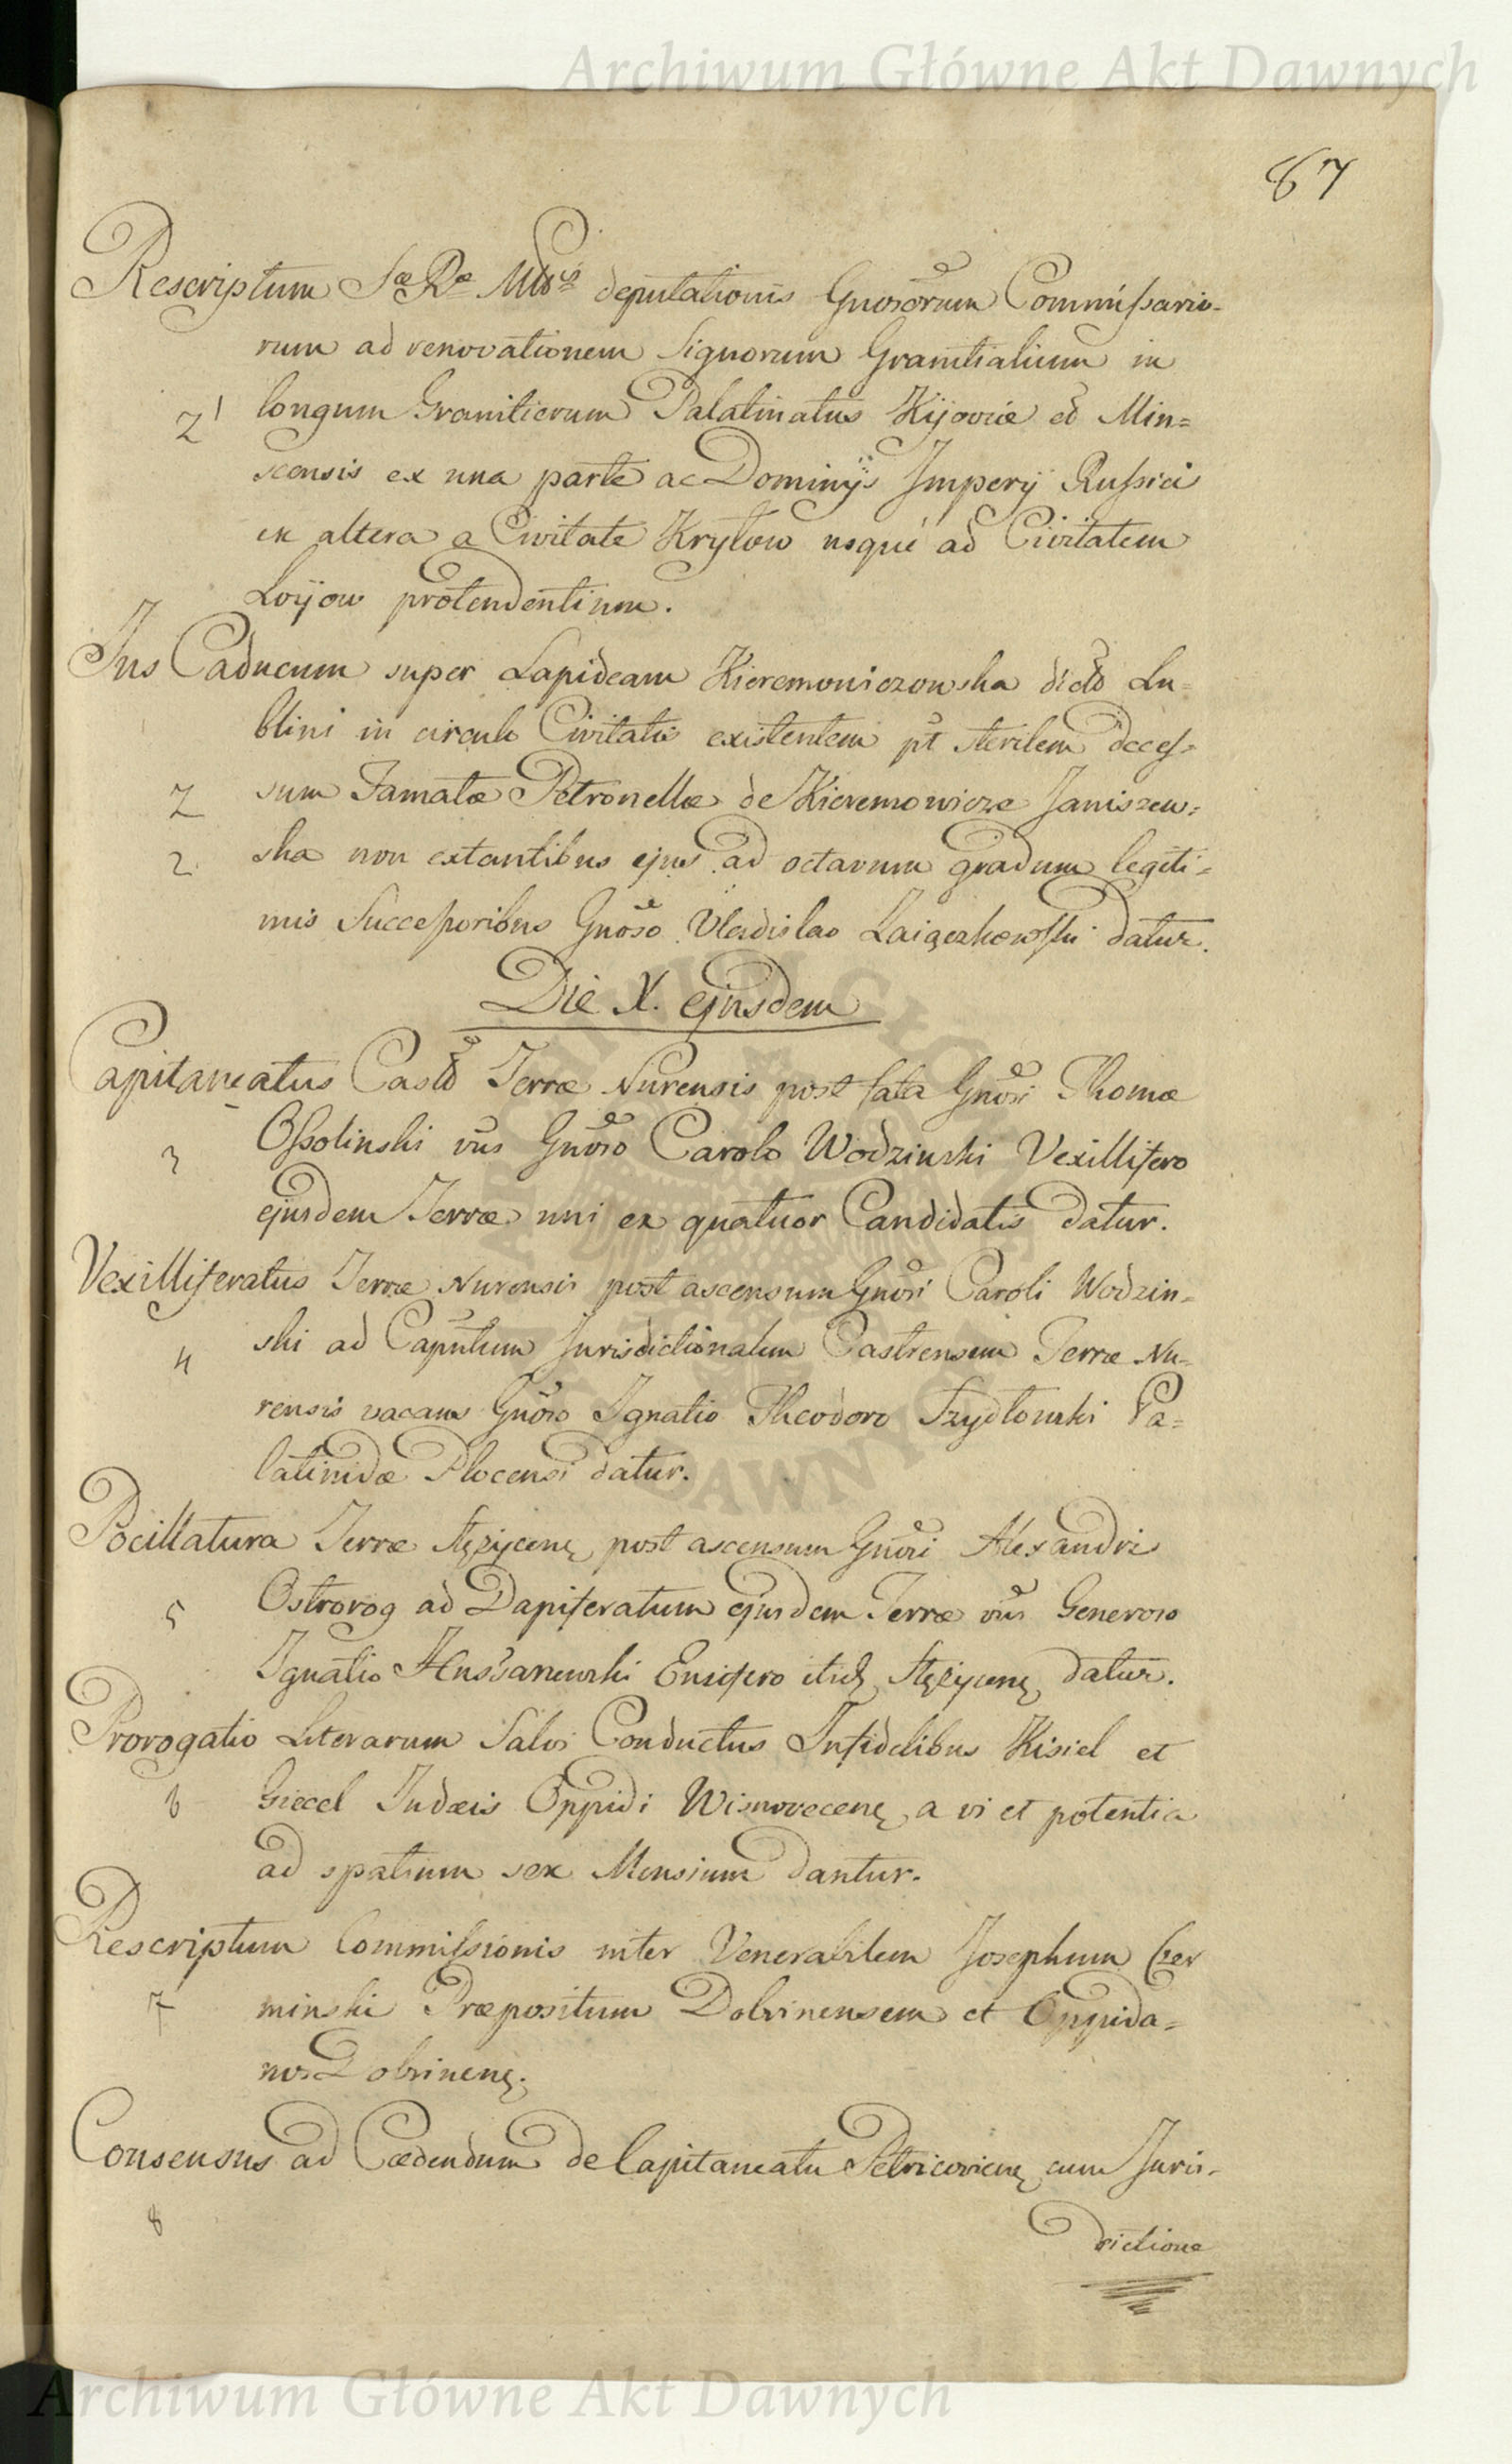 Archiwum Główne Akt Dawnych
67
Rescriptum Sæ Ræ Mttis deputationis Gnosorum Commissario-
rum ad renovationem Signorum Granitialium in
21 longum Granitierum Palatinatus Kijoviæ et Min=
scensis ex una parte ac Dominijs Imperij Russici
ex altera a Civitate Kryłow usque ad Civitatem
Loijow protendentium.
Jus Caducum super Lapideam Kieremowiczowska dictã Lu=
blini in circulo Civitatis existentem pt sterilem deces-
2 sum Famatæ Petronellæ de Kieremowicze Janiszew=
2. ska non extantibus ejus ad octavum gradum legiti=
mis Successoribus Gnoso Vladislao datur.
Die X. ejusdem
Capitaneatus Cast Terræ Nurensis post fata Gnosi Thomæ
3 Ossolinski vãs Gnoso Carolo Wodzinski Vexillifero
ejusdem Terræ uni ex quatuor Candidatis datur.
Vexilliferatus Terræ Nurensis post ascensum Gnosi Caroli Wodzin=
4 ski ad Captum Jurisdictionalem Castrensem Terræ Nu=
rensis vacans Gnoso Ignatio Theodoro Szydłowski Pa=
latinidæ Plocensi datur.
Pocillatura Terræ Stężycenę post ascensum Gnosi Alexandri
5 Ostrorog ad Dapiferatum ejusdem Terræ vãs Generoso
Ignatio Husarzewski Ensifero itid Stężycenę datur.
Prorogatio Literarum Salvi Conductus Infidelibus Kisiel et
6 Giecel Judæis Oppidi Wisnovecenę a vi et potentia
ad spatium sex Mensium dantur.
Rescriptum Commissionis inter Venerabilem Josephum Czer
7 minski Præpositum Dobrinensem et Oppida=
nos Dobrinenę.
Consensus ad Cædendum de Capitaneatu Petricovicenę cum Juris-
8
dictione
Archiwum Główne Akt Dawnych